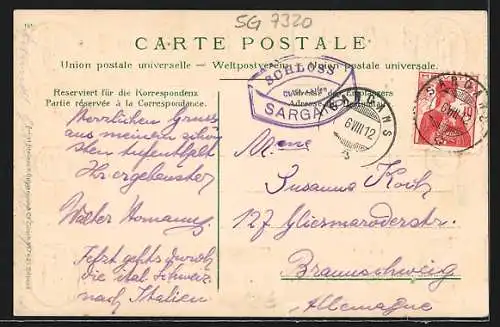 SG 7320
CARTE POSTALE
Union postale universelle – Weltpostverein – Union postale universale.
Reserviert für die Korrespondenz
Partie réservée à la Correspondance.
SCHLOSS
SARGANS
SARGANS
6 VIII 12
SARGANS
Herrlichen Gruss
aus meinem schön
sten Aufenthalt
Ihr ergebenster
Walter
Jetzt gehts durch
die ital. Schweiz
nach Italien
Mme
Susanna Koch
127 Gliesmaroderstr.
Braunschweig
Allemagne